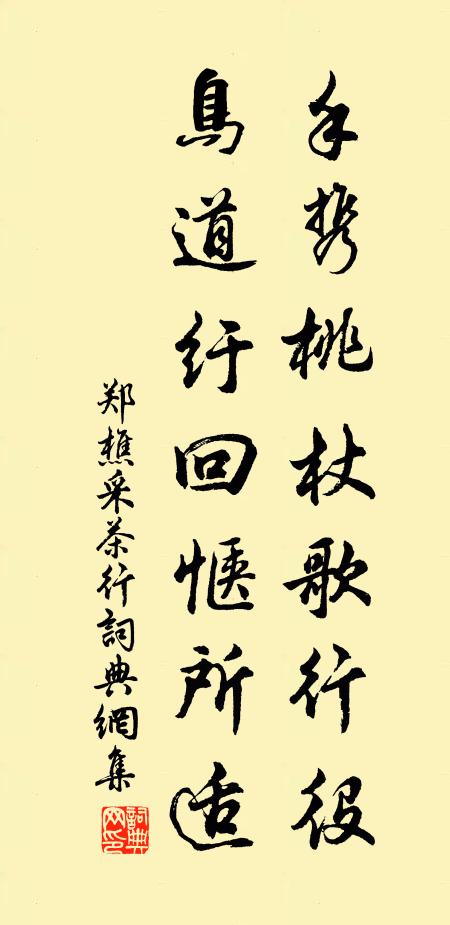 手携桃杖歌行役
鳥道纡回惬所适
郑樵采茶行詞典網集
詞典網印